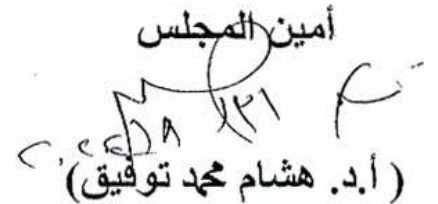 أمين المجلس
(أ.د. هشام محمد توفيق)